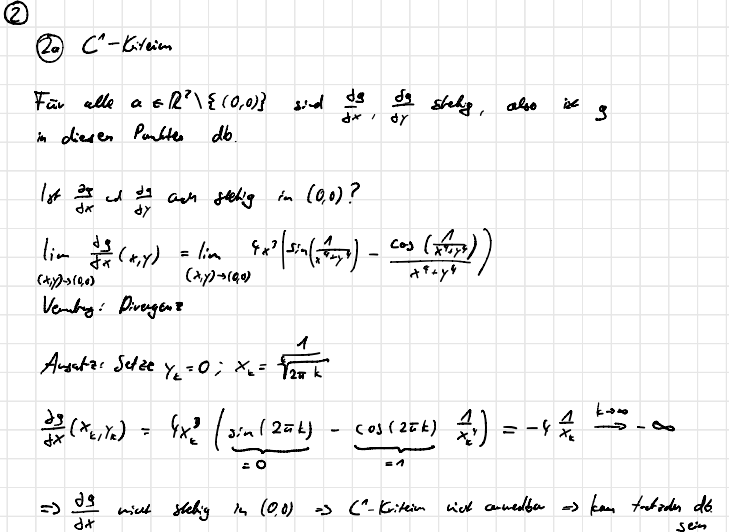 ②
②a C^1-Kriterium
Für alle a ∈ ℝ² \ {(0,0)} sind ∂g/∂x, ∂g/∂y stetig, also ist g
in diesen Punkten db.
Ist ∂g/∂x und ∂g/∂y auch stetig in (0,0)?
lim_{(x,y)→(0,0)} ∂g/∂x (x,y) = lim_{(x,y)→(0,0)} 4x³ (sin(1/(x⁴+y⁴)) - cos(1/(x⁴+y⁴))/(x⁴+y⁴))
Vermutung: Divergenz
Ansatz: Setze y_k = 0 ; x_k = 1/⁴√(2πk)
∂g/∂x (x_k, y_k) = 4x_k³ (sin(2πk) - cos(2πk) 1/x_k⁴) = -4 1/x_k →^{k→∞} -∞
=0 =1
⇒ ∂g/∂x nicht stetig in (0,0) ⇒ C^1-Kriterium nicht anwendbar ⇒ kann trotzdem db
sein